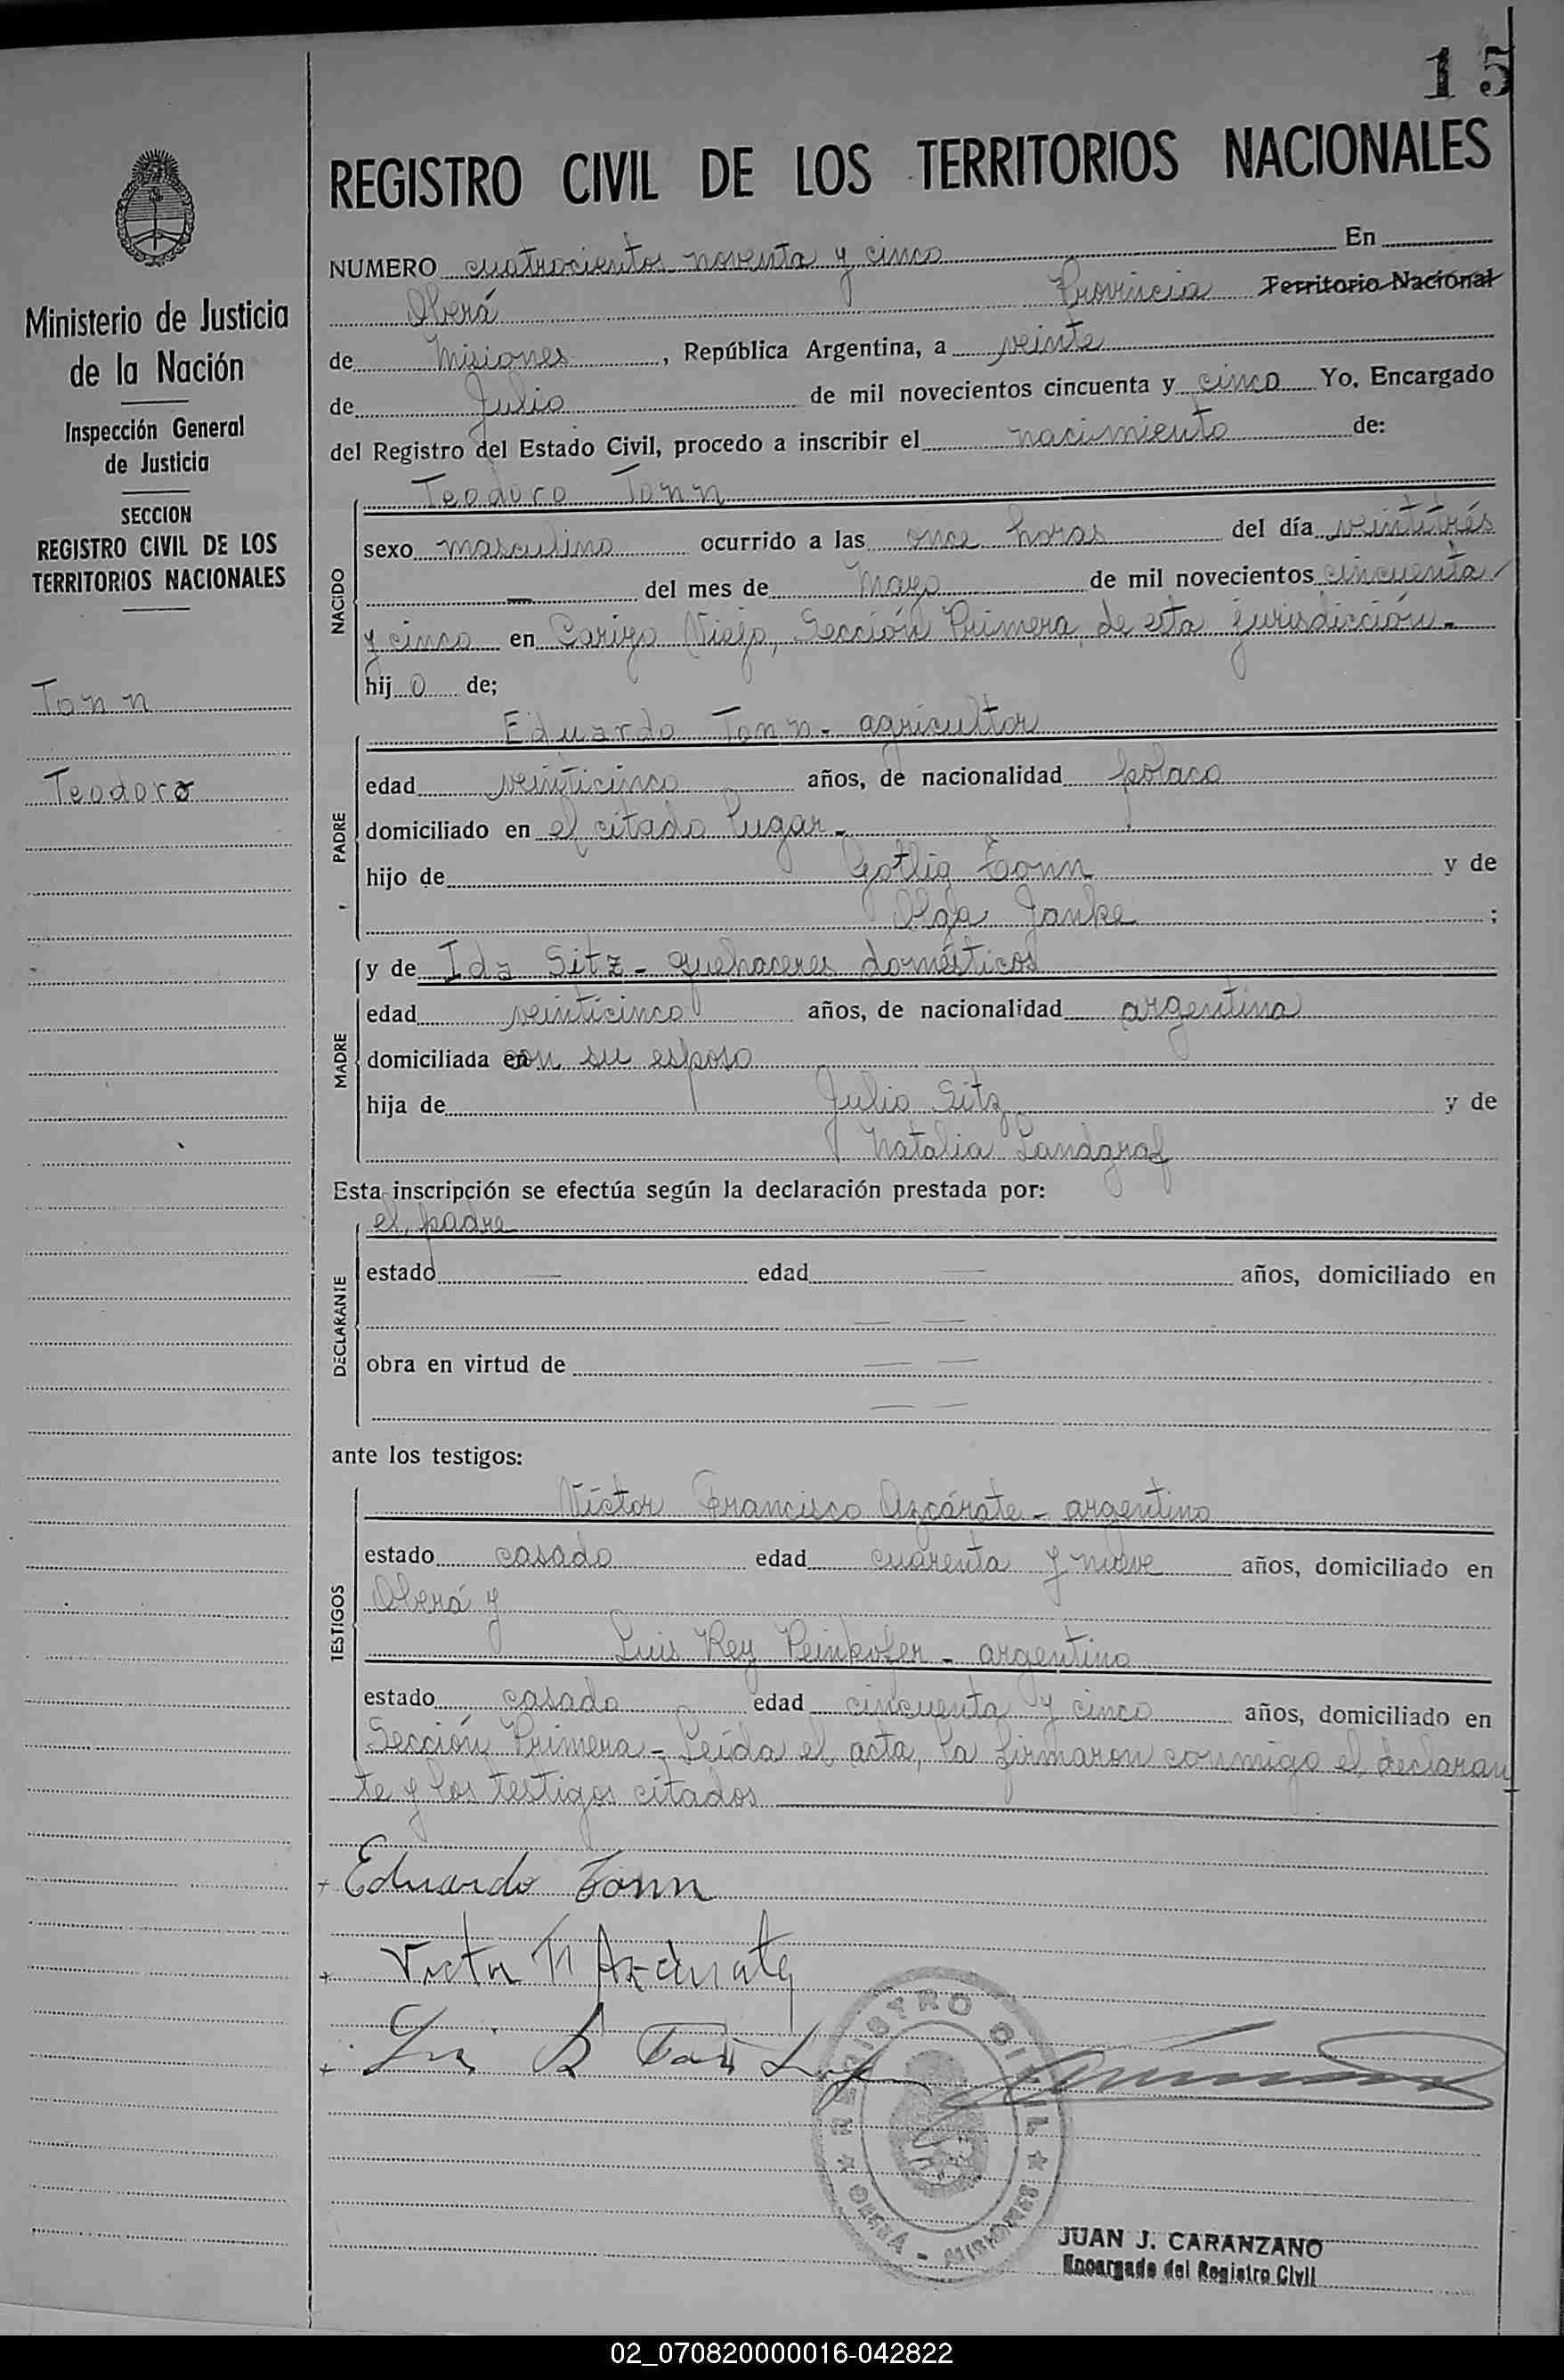 15
REGISTRO CIVIL DE LOS TERRITORIOS NACIONALES
Ministerio de Justicia
de la Nación
Inspección General
de Justicia
SECCION
REGISTRO CIVIL DE LOS
TERRITORIOS NACIONALES
Tonn
Teodoro
NUMERO cuatrocientos noventa y cinco En
Oberá Provincia Territorio Nacional
de Misiones, República Argentina, a veinte
de Julio de mil novecientos cincuenta y cinco Yo, Encargado
del Registro del Estado Civil, procedo a inscribir el nacimiento de:
NACIDO
Teodoro Tonn
sexo masculino ocurrido a las once horas del día veintitrés
— del mes de Mayo de mil novecientos cincuenta
y cinco en Viejo, Sección Primera, de esta jurisdicción.-
hijo de;
PADRE
Eduardo Tonn - agricultor
edad veinticinco años, de nacionalidad polaco
domiciliado en el citado lugar.-
hijo de Gotlig Tonn y de
Olga Janke ;
MADRE
y de Ida Sitz - quehaceres domésticos
edad veinticinco años, de nacionalidad argentina
domiciliada en con su esposo
hija de Julio Sitz y de
Natalia Landgraf
Esta inscripción se efectúa según la declaración prestada por:
DECLARANTE
el padre
estado — edad — años, domiciliado en
— —
obra en virtud de — —
— —
ante los testigos:
TESTIGOS
Víctor Francisco Azcárate - argentino
estado casado edad cuarenta y nueve años, domiciliado en
Oberá y
Luis Rey Peinkofer - argentino
estado casado edad cincuenta y cinco años, domiciliado en
Sección Primera - Leída el acta, la firmaron conmigo el declaran
te y los testigos citados
Eduardo Tonn
Victor F Azcárate
REGISTRO CIVIL
OBERÁ - MISIONES
JUAN J. CARANZANO
Encargado del Registro Civil
02_070820000016-042822